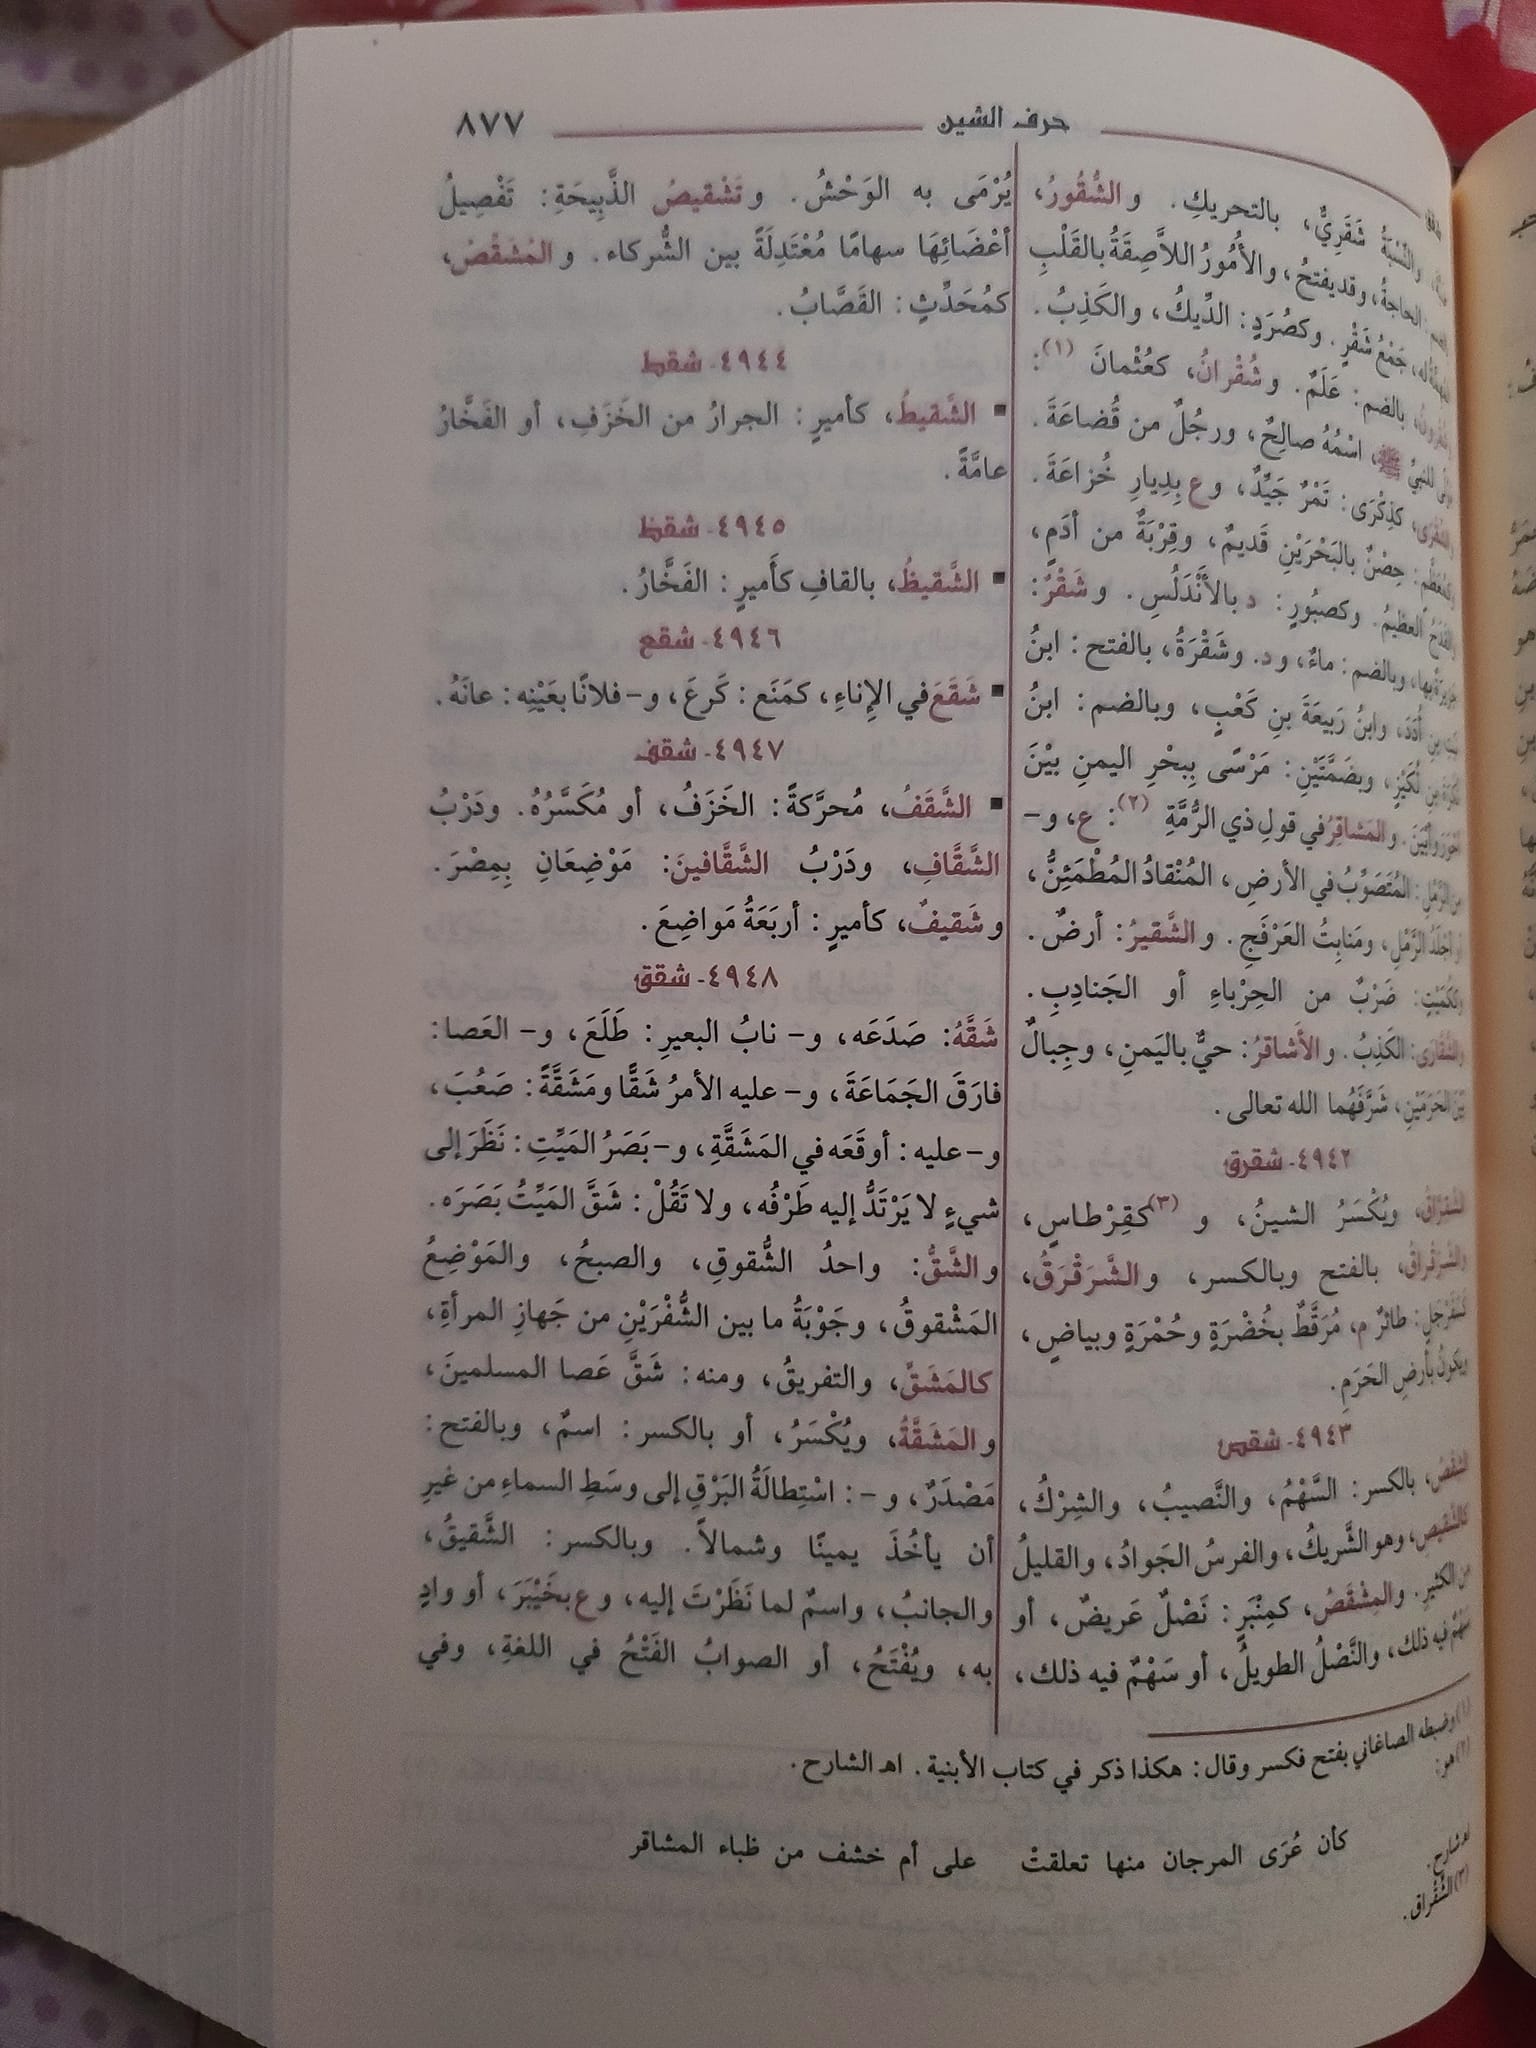 حرف الشين
٨٧٧
والنِّسْبَةُ شَقَرِيٌّ، بالتحريكِ. والشُّقُورُ،
الحاجةُ، وقد يفتحُ، والأُمُورُ اللاَّصِقَةُ بالقَلْبِ
له، جَمْعُ شَقْرٍ. وكصُرَدٍ: الدِّيكُ، والكَذِبُ.
بالضم: عَلَمٌ. وشُقْرانُ، كعُثْمانَ (١):
للنبيِّ ﷺ، اسْمُهُ صالِحٌ، ورجُلٌ من قُضاعَةَ.
كذِكْرَى: تَمْرٌ جَيِّدٌ، وع بِدِيارِ خُزاعَةَ.
وكمُعَظَّمٍ: حِصْنٌ بالبَحْرَيْنِ قَديمٌ، وقِرْبَةٌ من أدَمٍ،
والقَدَحُ العظيمُ. وكصبُورٍ: د بالأَنْدَلُسِ. وشَقْرٌ:
جزيرةٌ بها، وبالضم: ماءٌ، ود. وشَقْرَةُ، بالفتح: ابنُ
بنِ أُدَدَ، وابنُ رَبيعَةَ بنِ كَعْبٍ، وبالضم: ابنُ
نُكْرَةَ بنِ لُكَيْزٍ، وبضَمَّتَيْنِ: مَرْسًى بِبحْرِ اليمنِ بيْنَ
أحْوَرَ وأبْيَنَ. والمَشاقِرُ في قولِ ذي الرُّمَّةِ (٢): ع، و–
من الرَّمْلِ: المُتَصَوِّبُ في الأرضِ، المُنْقادُ المُطْمَئِنُّ،
أو أجْلَدُ الرَّمْلِ، ومَنابِتُ العَرْفَجِ. والشَّقيرُ: أرضٌ.
وكَكُمَيْتٍ: ضَرْبٌ من الحِرْباءِ أو الجَنادِبِ.
والشُّقَّارَى: الكَذِبُ. والأَشاقرُ: حيٌّ باليَمنِ، وجِبالٌ
بَيْنَ الحَرَمَيْنِ، شَرَّفَهُما الله تعالى.
٤٩٤٢- شقرق
الشِّقِرَّاقُ، ويُكْسَرُ الشينُ، و (٣)كقِرْطاسٍ،
والشَّرَقْراقُ، بالفتح وبالكسر، والشَّرَقْرَقُ،
كسَفَرْجَلٍ: طائرٌ م، مُرَقَّطٌ بخُضْرَةٍ وحُمْرَةٍ وبياضٍ،
ويكونُ بأرضِ الحَرَمِ.
٤٩٤٣- شقص
الشِّقْصُ، بالكسر: السَّهْمُ، والنَّصيبُ، والشِرْكُ،
كالشَّقيصِ، وهو الشَّريكُ، والفرسُ الجَوادُ، والقليلُ
من الكثيرِ. والمِشْقَصُ، كمِنْبَرٍ: نَصْلٌ عَريضٌ، أو
سَهْمٌ فيه ذلك، والنَّصْلُ الطويلُ، أو سَهْمٌ فيه ذلك،
يُرْمَى به الوَحْشُ. وتَشْقيصُ الذَّبِيحَةِ: تَفْصِيلُ
أعْضَائِهَا سهامًا مُعْتَدِلَةً بين الشُّركاء. والمُشَقِّصُ،
كمُحَدِّثٍ: القَصَّابُ.
٤٩٤٤- شقط
■ الشَّقيطُ، كأميرٍ: الجرارُ من الخَزَفِ، أو الفَخَّارُ
عامَّةً.
٤٩٤٥- شقظ
■ الشَّقيظُ، بالقافِ كأَميرٍ: الفَخَّارُ.
٤٩٤٦- شقع
■ شَقَعَ في الإناءِ، كمَنَع: كَرعَ، و– فلانًا بعَيْنِه: عانَهُ.
٤٩٤٧- شقف
■ الشَّقَفُ، مُحرَّكةً: الخَزَفُ، أو مُكَسَّرُهُ. ودَرْبُ
الشَّقَّافِ، ودَرْبُ الشَّقَّافينَ: مَوْضِعَانِ بِمِصْرَ.
وشَقيفٌ، كأميرٍ: أربَعَةُ مَواضِعَ.
٤٩٤٨- شقق
شَقَّهُ: صَدَعَه، و– نابُ البعيرِ: طَلَعَ، و– العَصا:
فارَقَ الجَمَاعَةَ، و– عليه الأمرُ شَقًّا ومَشَقَّةً: صَعُبَ،
و– عليه: أوقَعَه في المَشَقَّةِ، و– بَصَرُ المَيِّتِ: نَظَرَ إلى
شيءٍ لا يَرْتَدُّ إليه طَرْفُه، ولا تَقُلْ: شَقَّ المَيِّتُ بَصَرَه.
والشَّقُّ: واحدُ الشُّقوقِ، والصبحُ، والمَوْضِعُ
المَشْقوقُ، وجَوْبَةُ ما بين الشُّفْرَيْنِ من جَهازِ المرأةِ،
كالمَشَقِّ، والتفريقُ، ومنه: شَقَّ عَصا المسلمينَ،
والمَشَقَّةُ، ويُكْسَرُ، أو بالكسر: اسمٌ، وبالفتح:
مَصْدَرٌ، و–: اسْتِطالَةُ البَرْقِ إلى وسَطِ السماءِ من غيرِ
أن يأخُذَ يمينًا وشمالاً. وبالكسر: الشَّقيقُ،
والجانبُ، واسمٌ لما نَظَرْتَ إليه، وع بخَيْبَرَ، أو وادٍ
به، ويُفْتَحُ، أو الصوابُ الفَتْحُ في اللغةِ، وفي
(١) وضبطه الصاغاني بفتح فكسر وقال: هكذا ذكر في كتاب الأبنية. اهـ الشارح.
(٢) هو:
كأن عُرَى المرجان منها تعلقتْ على أم خشف من ظباء المشاقر
اهـ شارح.
(٣) الشِّقْراق.